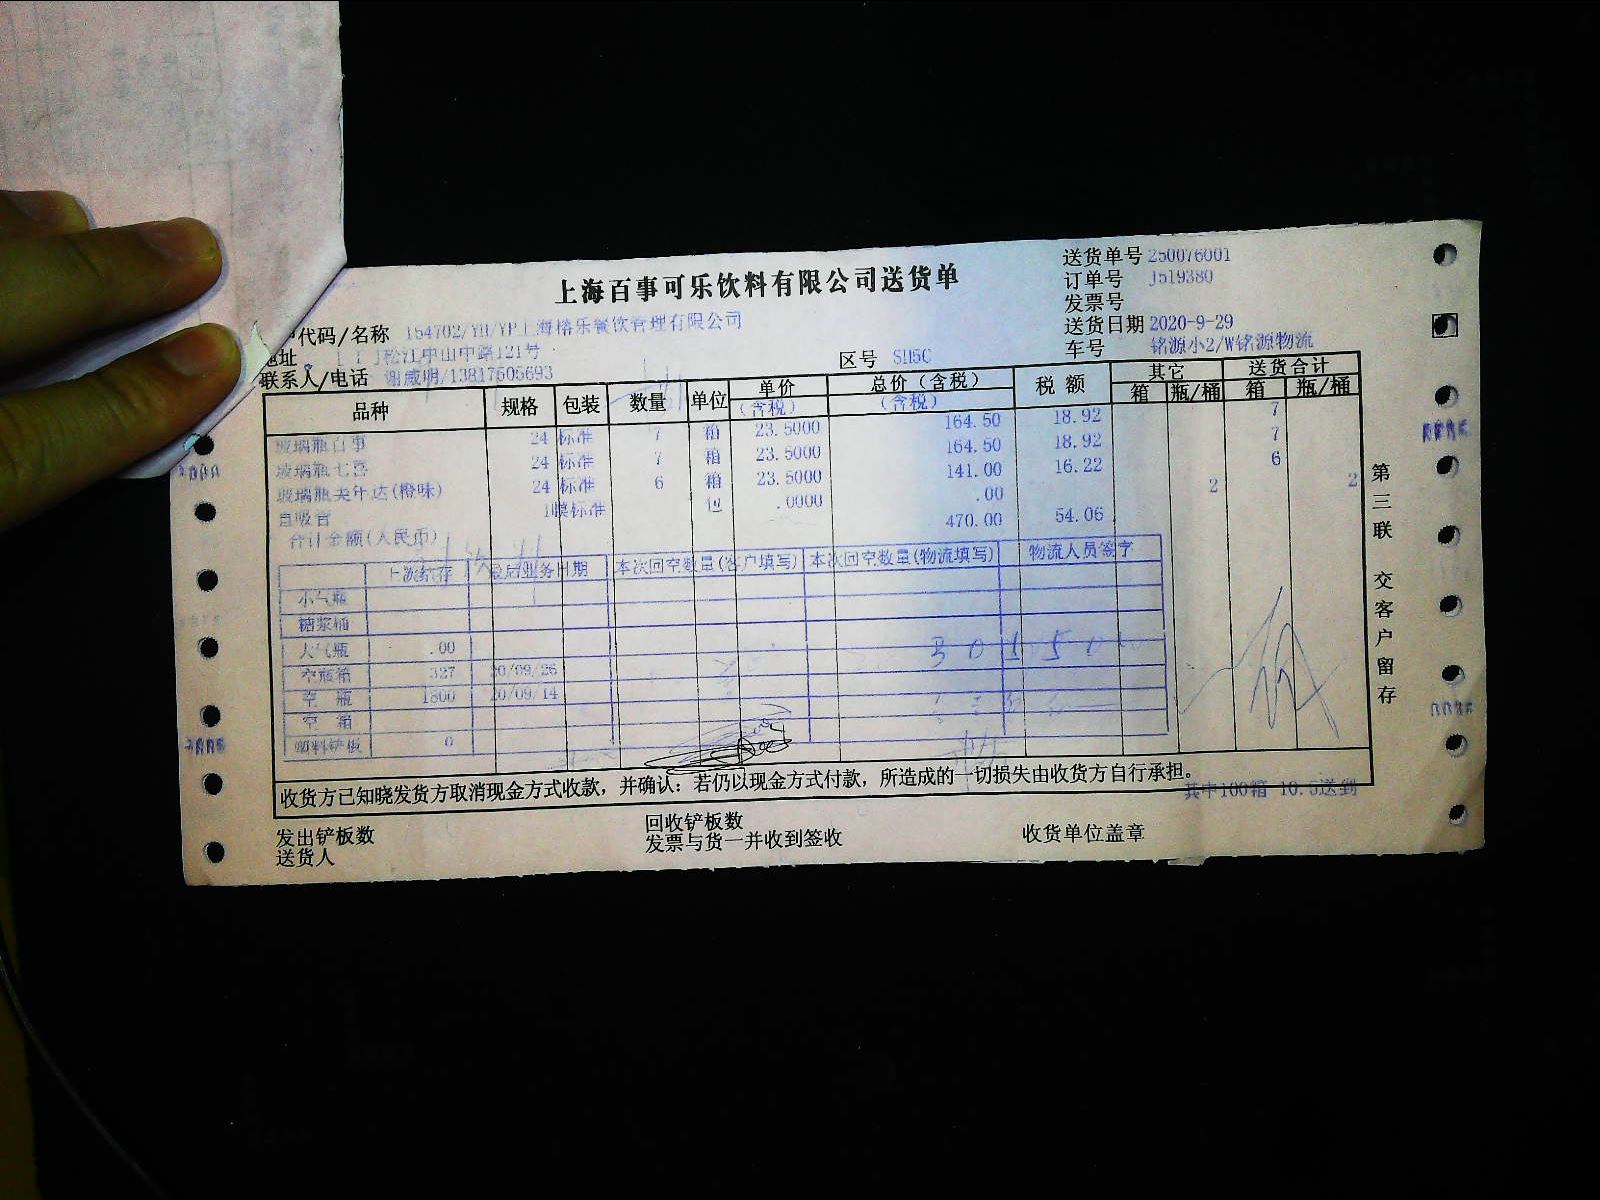 上海百事可乐饮料有限公司送货单
送货单号 250076001
订单号 J519380
发票号
送货日期 2020-9-29
车号 铭源小2/W铭源物流
代码/名称 154702/YH/YP上海榕乐餐饮管理有限公司
地址 松江中山中路121号
区号 SH5C
联系人/电话 谢威明/13817605693
品种 规格 包装 数量 单位 单价 总价(含税) 税额 其它 送货合计
(含税) (含税) 箱 瓶/桶 箱 瓶/桶
玻璃瓶百事 24 标准 7 箱 23.5000 164.50 18.92 7
玻璃瓶七喜 24 标准 7 箱 23.5000 164.50 18.92 7
玻璃瓶美年达(橙味) 24 标准 6 箱 23.5000 141.00 16.22 6
直吸管 1膜标准 包 .0000 .00 2 2
合计金额(人民币) 470.00 54.06
上次结存 最后业务日期 本次回空数量(客户填写) 本次回空数量(物流填写) 物流人员签字
小气瓶
糖浆桶
大气瓶 .00
空瓶箱 327 20/09/26
空 瓶 1800 20/09/14
空 箱
塑料铲板 0
收货方已知晓发货方取消现金方式收款，并确认：若仍以现金方式付款，所造成的一切损失由收货方自行承担。
其中100箱 10.5送到
发出铲板数 回收铲板数
送货人 发票与货一并收到签收 收货单位盖章
第三联 交客户留存